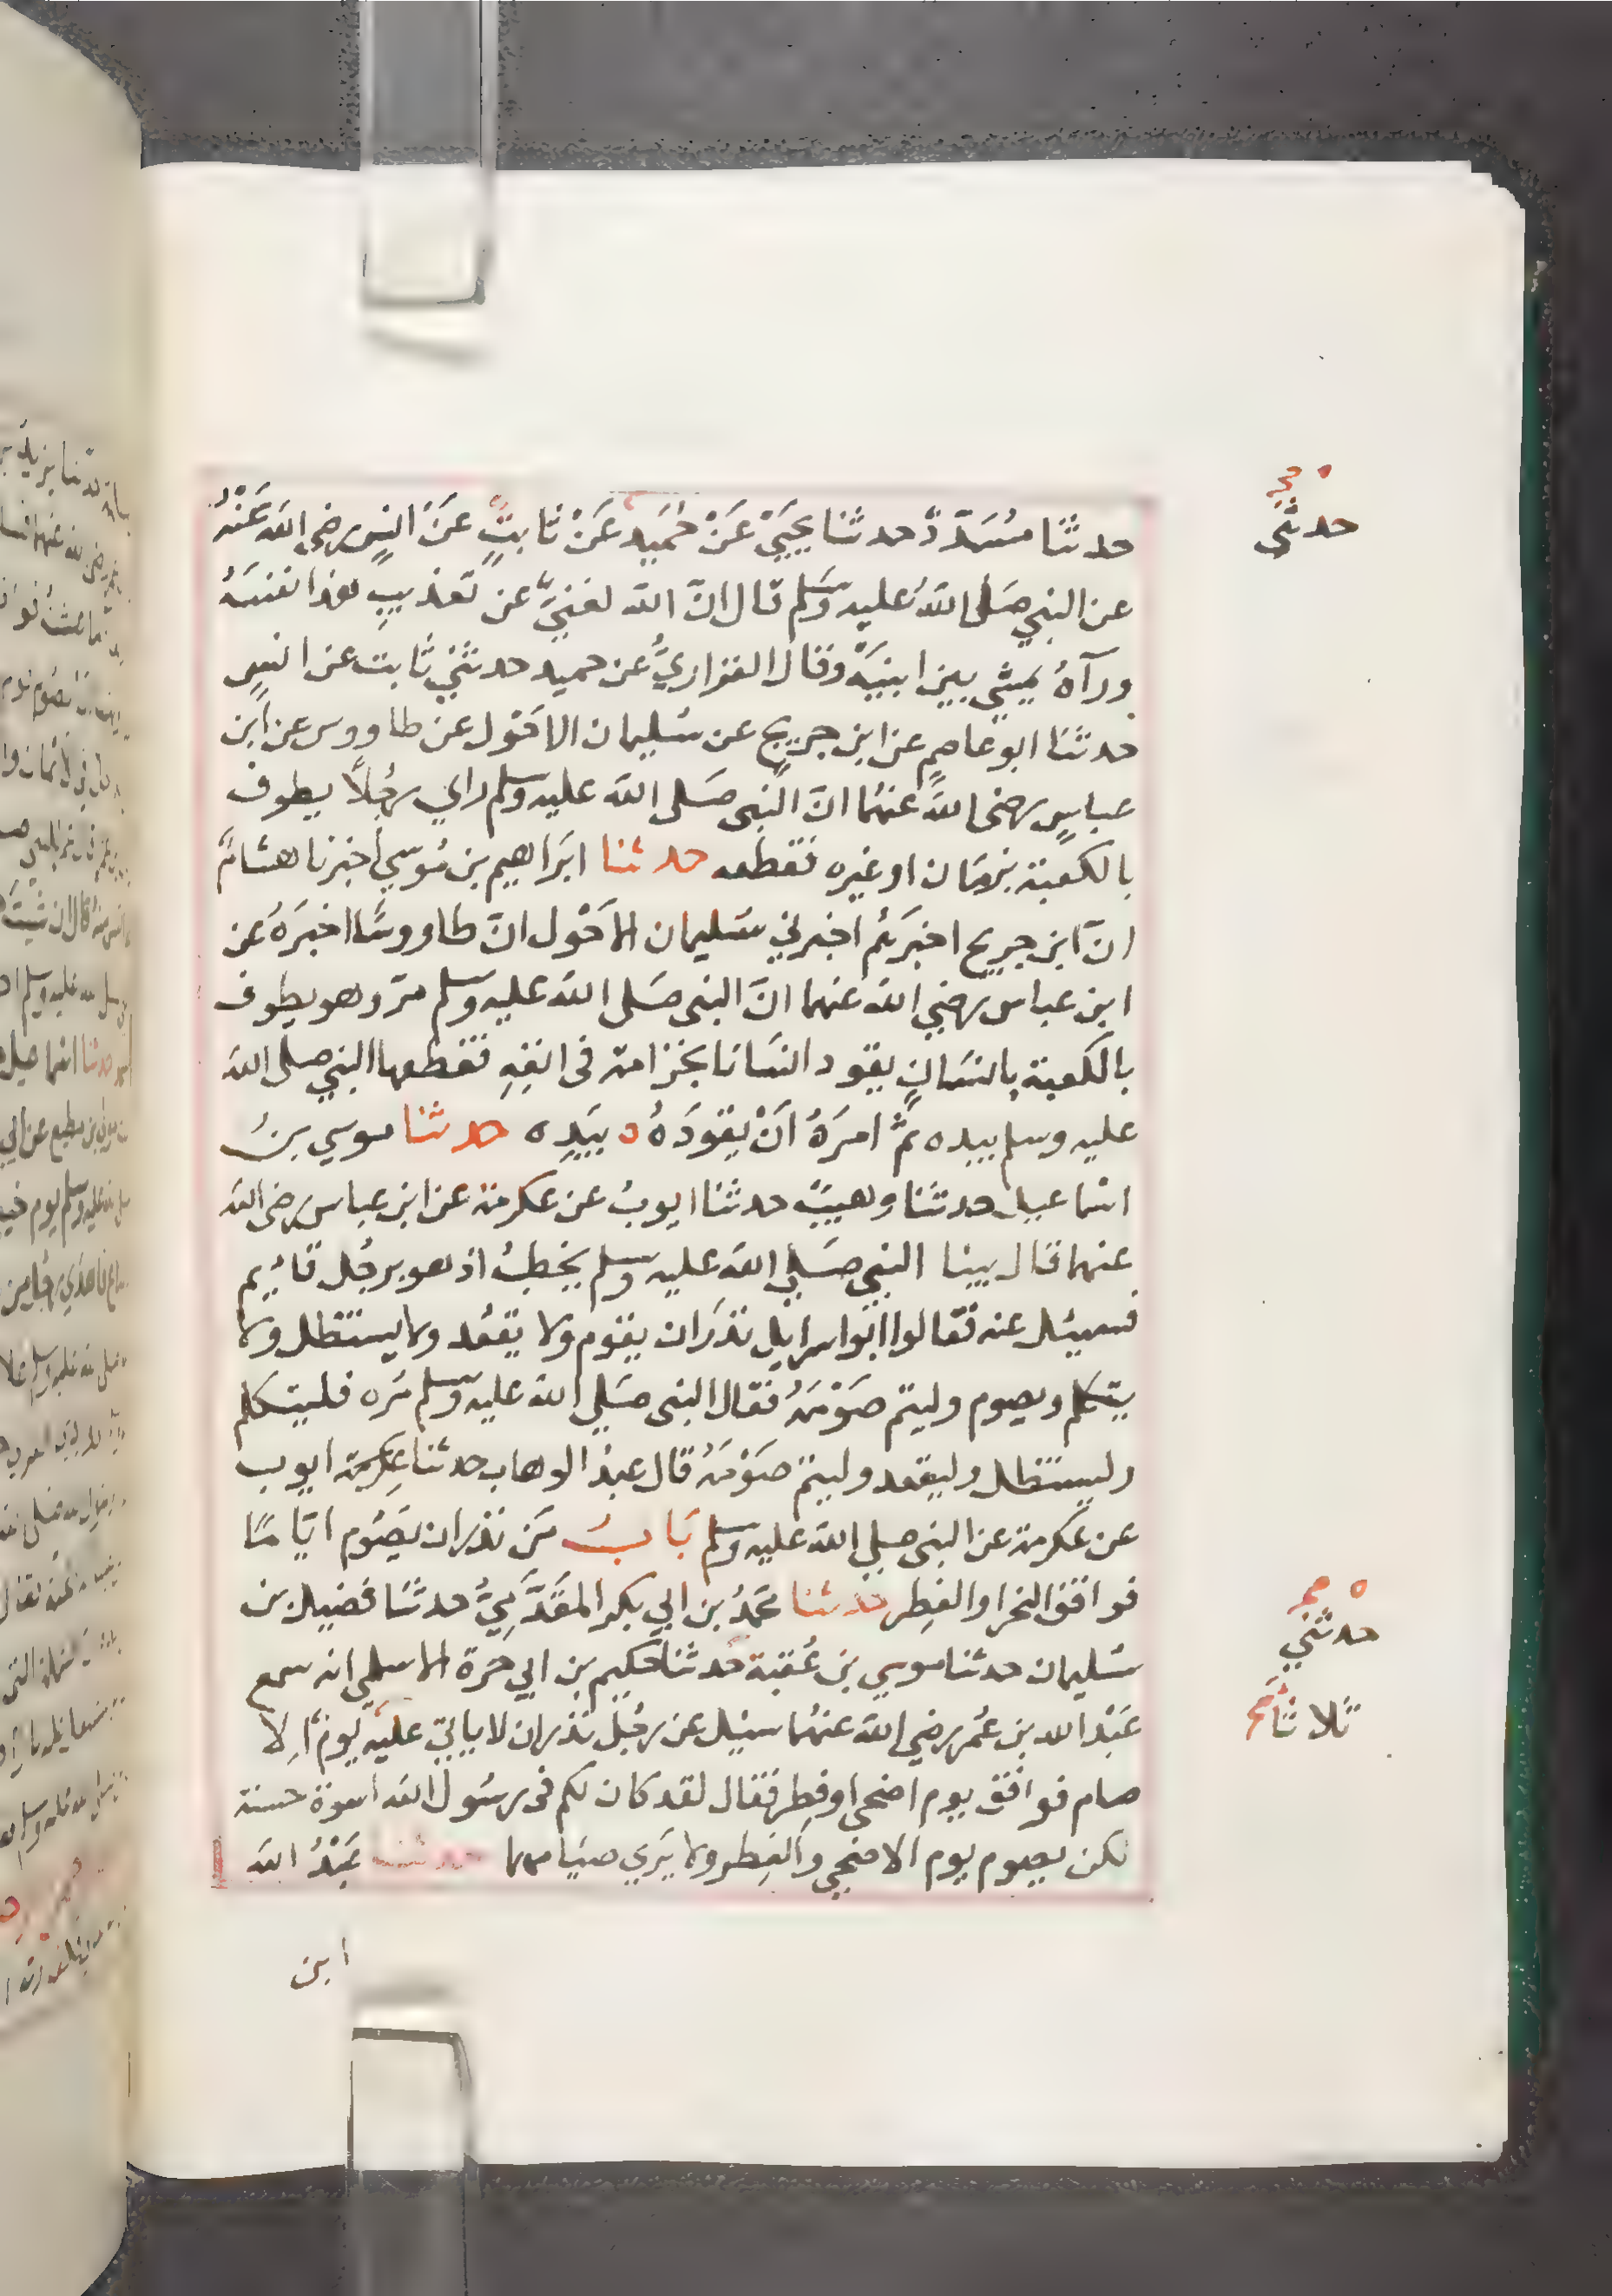 حدثنا مُسَدَّدٌ حدثنا يحيَى عَنْ حُمَيدٍ عَنْ ثابتٍ عَنْ انسٍ رضي الله عَنْهُ
عن النبي صَلى اللهُ عليه وَسَلم قال انَّ الله لغنيٌّ عن تعذيبِ هذا نفسَهُ
ورآهُ يمشي بين ابنيَهِ وقال الفزاريُّ عن حميد حدثني ثابت عن انسٍ
حدثنا ابو عاصمٍ عن ابن جريجٍ عن سُليمان الاحَوْل عن طاووس عن ابن
عباسٍ رضي اللهُ عنهُما انَّ النبي صَلى الله عليه وسلم راي رجُلاً يطوف
بالكعبة بزمَام او غيره فقطعه حدثنا ابرَاهيم بن مُوسي اخبرنا هشامٌ
انَّ ابن جريج اخبرَهُم اخبرني سُليمان الاحَوْل انَّ طاووسًا اخبرَهُ عن
ابن عباس رضي الله عنهما انَّ النبي صَلى الله عليه وسلم مرّ وهو يطوف
بالكعبة بانسَانٍ يقود انسَانا بخزامة في انفِهِ فقطعها النبي صلى الله
عليه وسلم بيده ثمَّ امرَهُ اَنْ يقودَهُ ه بيَدِه حدثنا موسي بنُ
اسْماعيل حدثنا وهيبٌ حدثنا ايوبُ عن عكرمة عن ابن عباس رضي الله
عنهما قال بينا النبي صَلي الله عليه وسلم يخطبُ اذ هو برجُل قائيم
فسيئل عنه فقالوا ابوا سرايل نذرَ ان يقوم ولا يقعُد ولا يستظل ولا
يتكلم ويصوم وليتم صَوْمَهُ فقال النبي صَلي الله عليه وسلم مُره فليتكلم
وليستظل وليقعد وليتم صَوْمَهُ قال عبدُ الوهاب حدثنا عكرمة ايوب
عن عكرمة عن النبي صلي الله عليه وسلم بَابُ مَن نذر ان يَصُوم ايّامًا
فوافق النحر او الفِطر حدثنا محمّدُ بن ابي بكر المقَدَّمِيُّ حدثنَا فضيل بن
سُليمان حدثنا موسي بن عُقبة حدثنا حكيم بن ابي حرّة الاسلمي انه سمع
عَبْد الله بن عُمر رضي الله عنهُما سيئل عن رجُل نذر ان لا ياتي عليه يومٌ اِلا
صام فوافق يوم اضحي او فِطر فقال لقد كان لكم في رسُول الله اسوة حسنة
لكن يصوم يوم الاضحي والفِطر ولا يَرَي صيَامهما حدثنا عَبْدُ الله
ابن
حدثني
حدثني
ثلاثا